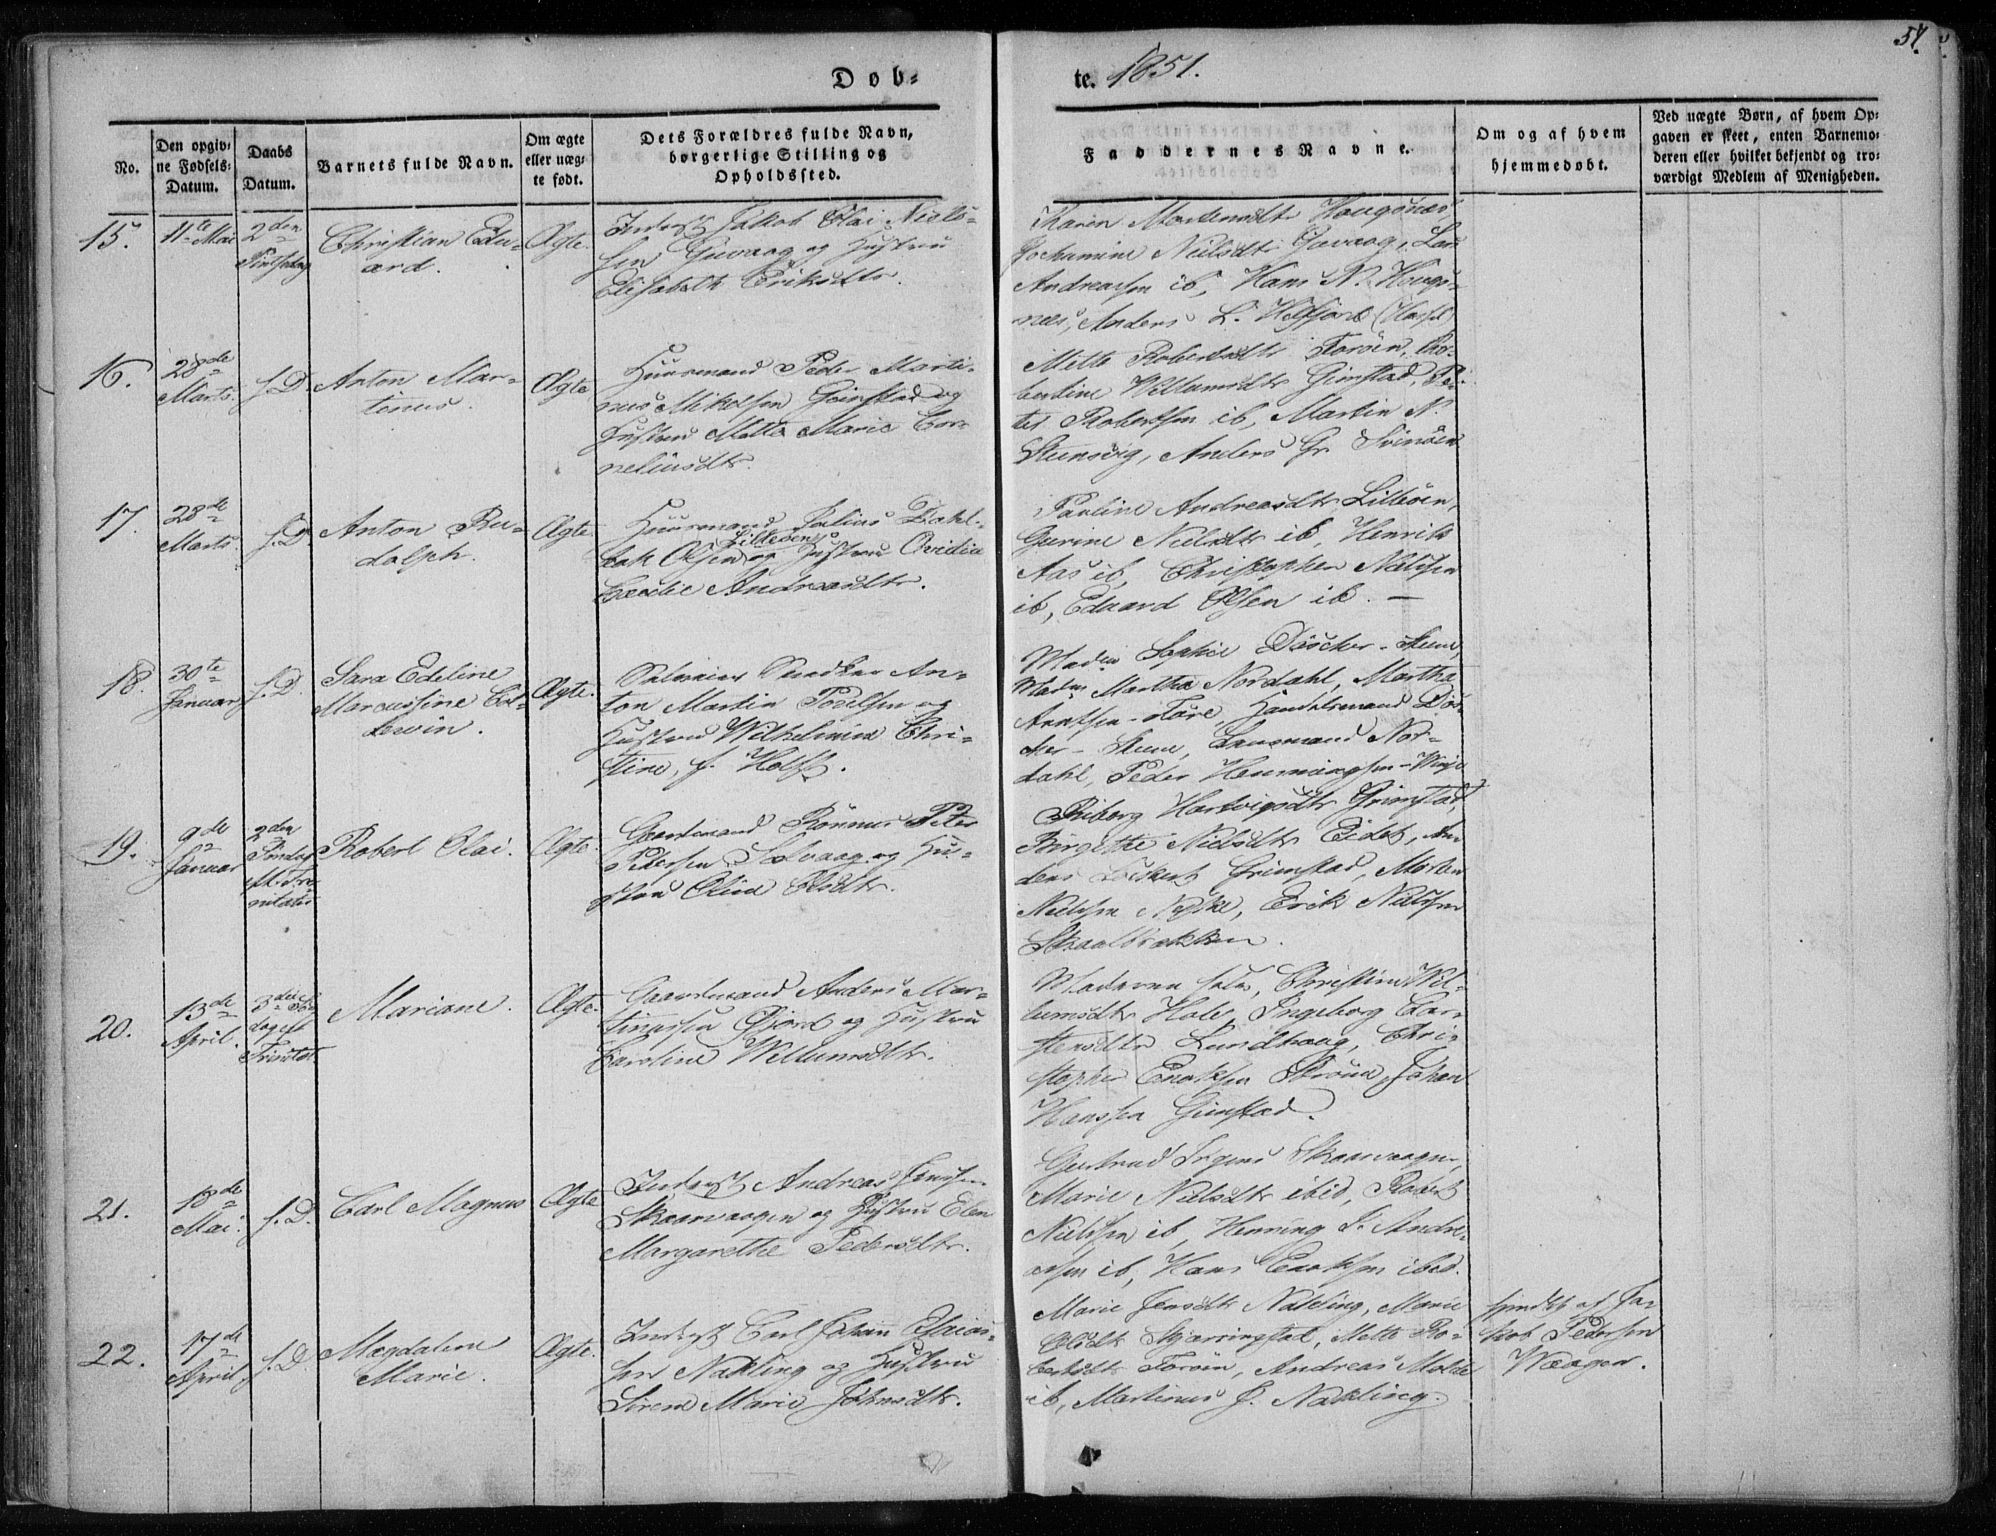 Døb-
te. 1851.
57.
No.
Den opgiv-
ne Fødsels-
Datum.
Daabs
Datum.
Barnets fulde Navn.
Om ægte
eller uæg-
te født.
Dets Forældres fulde Navn,
borgerlige Stilling og
Opholdssted.
Faddernes Navne.
Om og af hvem
hjemmedøbt.
Ved uægte Børn, af hvem Op-
gaven er skeet, enten Barnemo-
deren eller hvilket bekjendt og tro-
værdigt Medlem af Menigheden.
15.
11te Mai
2den
Pintsedag
Christian Edu-
ard.
Ægte.
Inderst Jakob Olai Niels-
sen Guvaag og Hustru
Elisabeth Eriksdtr.
Karen Mortensdtr Hougsnæs,
Jochumine Nielsdtr Guvaag, Lars
Andreassen ib, Hans N. Hougs-
næs, Anders L. (Hassel)
16.
28de
Marts.
s.D.
Anton Mar-
tinus.
Ægte
Huusmand Peder Marti-
nus Mikelsen Grimstad og
Hustru Mette Marie Cor-
neliusdtr.
Mette Robertsdtr Forøen, Ro-
bertine Willumsdtr Grimstad, Pe-
ter Robertsen ib, Martin N.
Steensvig, Anders Gr. Svinøen
17.
28de
Marts.
s.D.
Anton Ru-
dolph.
Ægte.
Huusmand Julius Dahl-
bak Olsen Lilleøen og Hustru Ovidia
Cecilie Andreasdtr.
Pauline Andreasdtr Lilleøen,
Gurine Nielsdtr ib, Henrik
Aas ib, Christopher Nielsen
ib, Eduard Olsen ib. —
18.
30te
Januar
s.D.
Sara Edeline
Marcustine Col-
bervin.
Ægte.
Anton Martin Poulsen og
Hustru Wilhelmine Chri-
stine, f. Holst.
Madm Sophie Döscher - Steene,
Madm Martha Nordahl, Martha
Arntsen - Føre, Handelsmand Dös-
cher - Steene, Lensmand Nor-
dahl, Peder Henningsen - Vinje
19.
9de
Januar
2den
Søndag
eft. Tri-
nitatis
Robert Olai.
Ægte.
Gaardmand Rønnus Peter
Pedersen Solvaag og Hu-
stru Olina Olsdtr.
Riborg Hartvigsdtr Grimstad,
Birgithe Nielsdtr Eidet, An-
ders Lockert Grimstad, Morten
Nielsen Nyke, Erik Nielsen
Skaalbrækken.
20.
13de
April.
3die Søn-
dag eft
Trinitat.
Mariane.
Ægte.
Gaardmand Anders Mar-
tinussen Fjord og Hustru
Caroline Willumsdtr.
Moderen selv, Christine Wil-
lumsdtr Hole, Ingeborg Car-
stensdtr Lundhoug, Chri-
stopher Enoksen Skroen, Johan
Hanssen Grimstad.
21.
18de
Mai.
s.D.
Carl Magnus
Ægte
Inderst Andreas Jenssen
Skaarvaagen og Hustru Elen
Margarethe Pedersdtr.
Gertrud Irgens Skaarvaagen,
Marie Nielsdtr ibid, Robert
Nielsen ib, Henning J. Andre-
assen ib, Hans Enoksen ibid.
22.
17de
April
s.D.
Magdalene
Marie.
Ægte.
Inderst Carl Johan Elias-
sen Nakling og Hustru
Sirene Marie Johnsdtr.
Marie Jensdtr Nakling, Marie
Olsdtr Skjærringstad, Mette Ro-
bertsdtr Forøen, Andreas Molde
ib, Martinus J. Nakling.
hjmdbt af Ja-
kob Pedersen
Waagen.